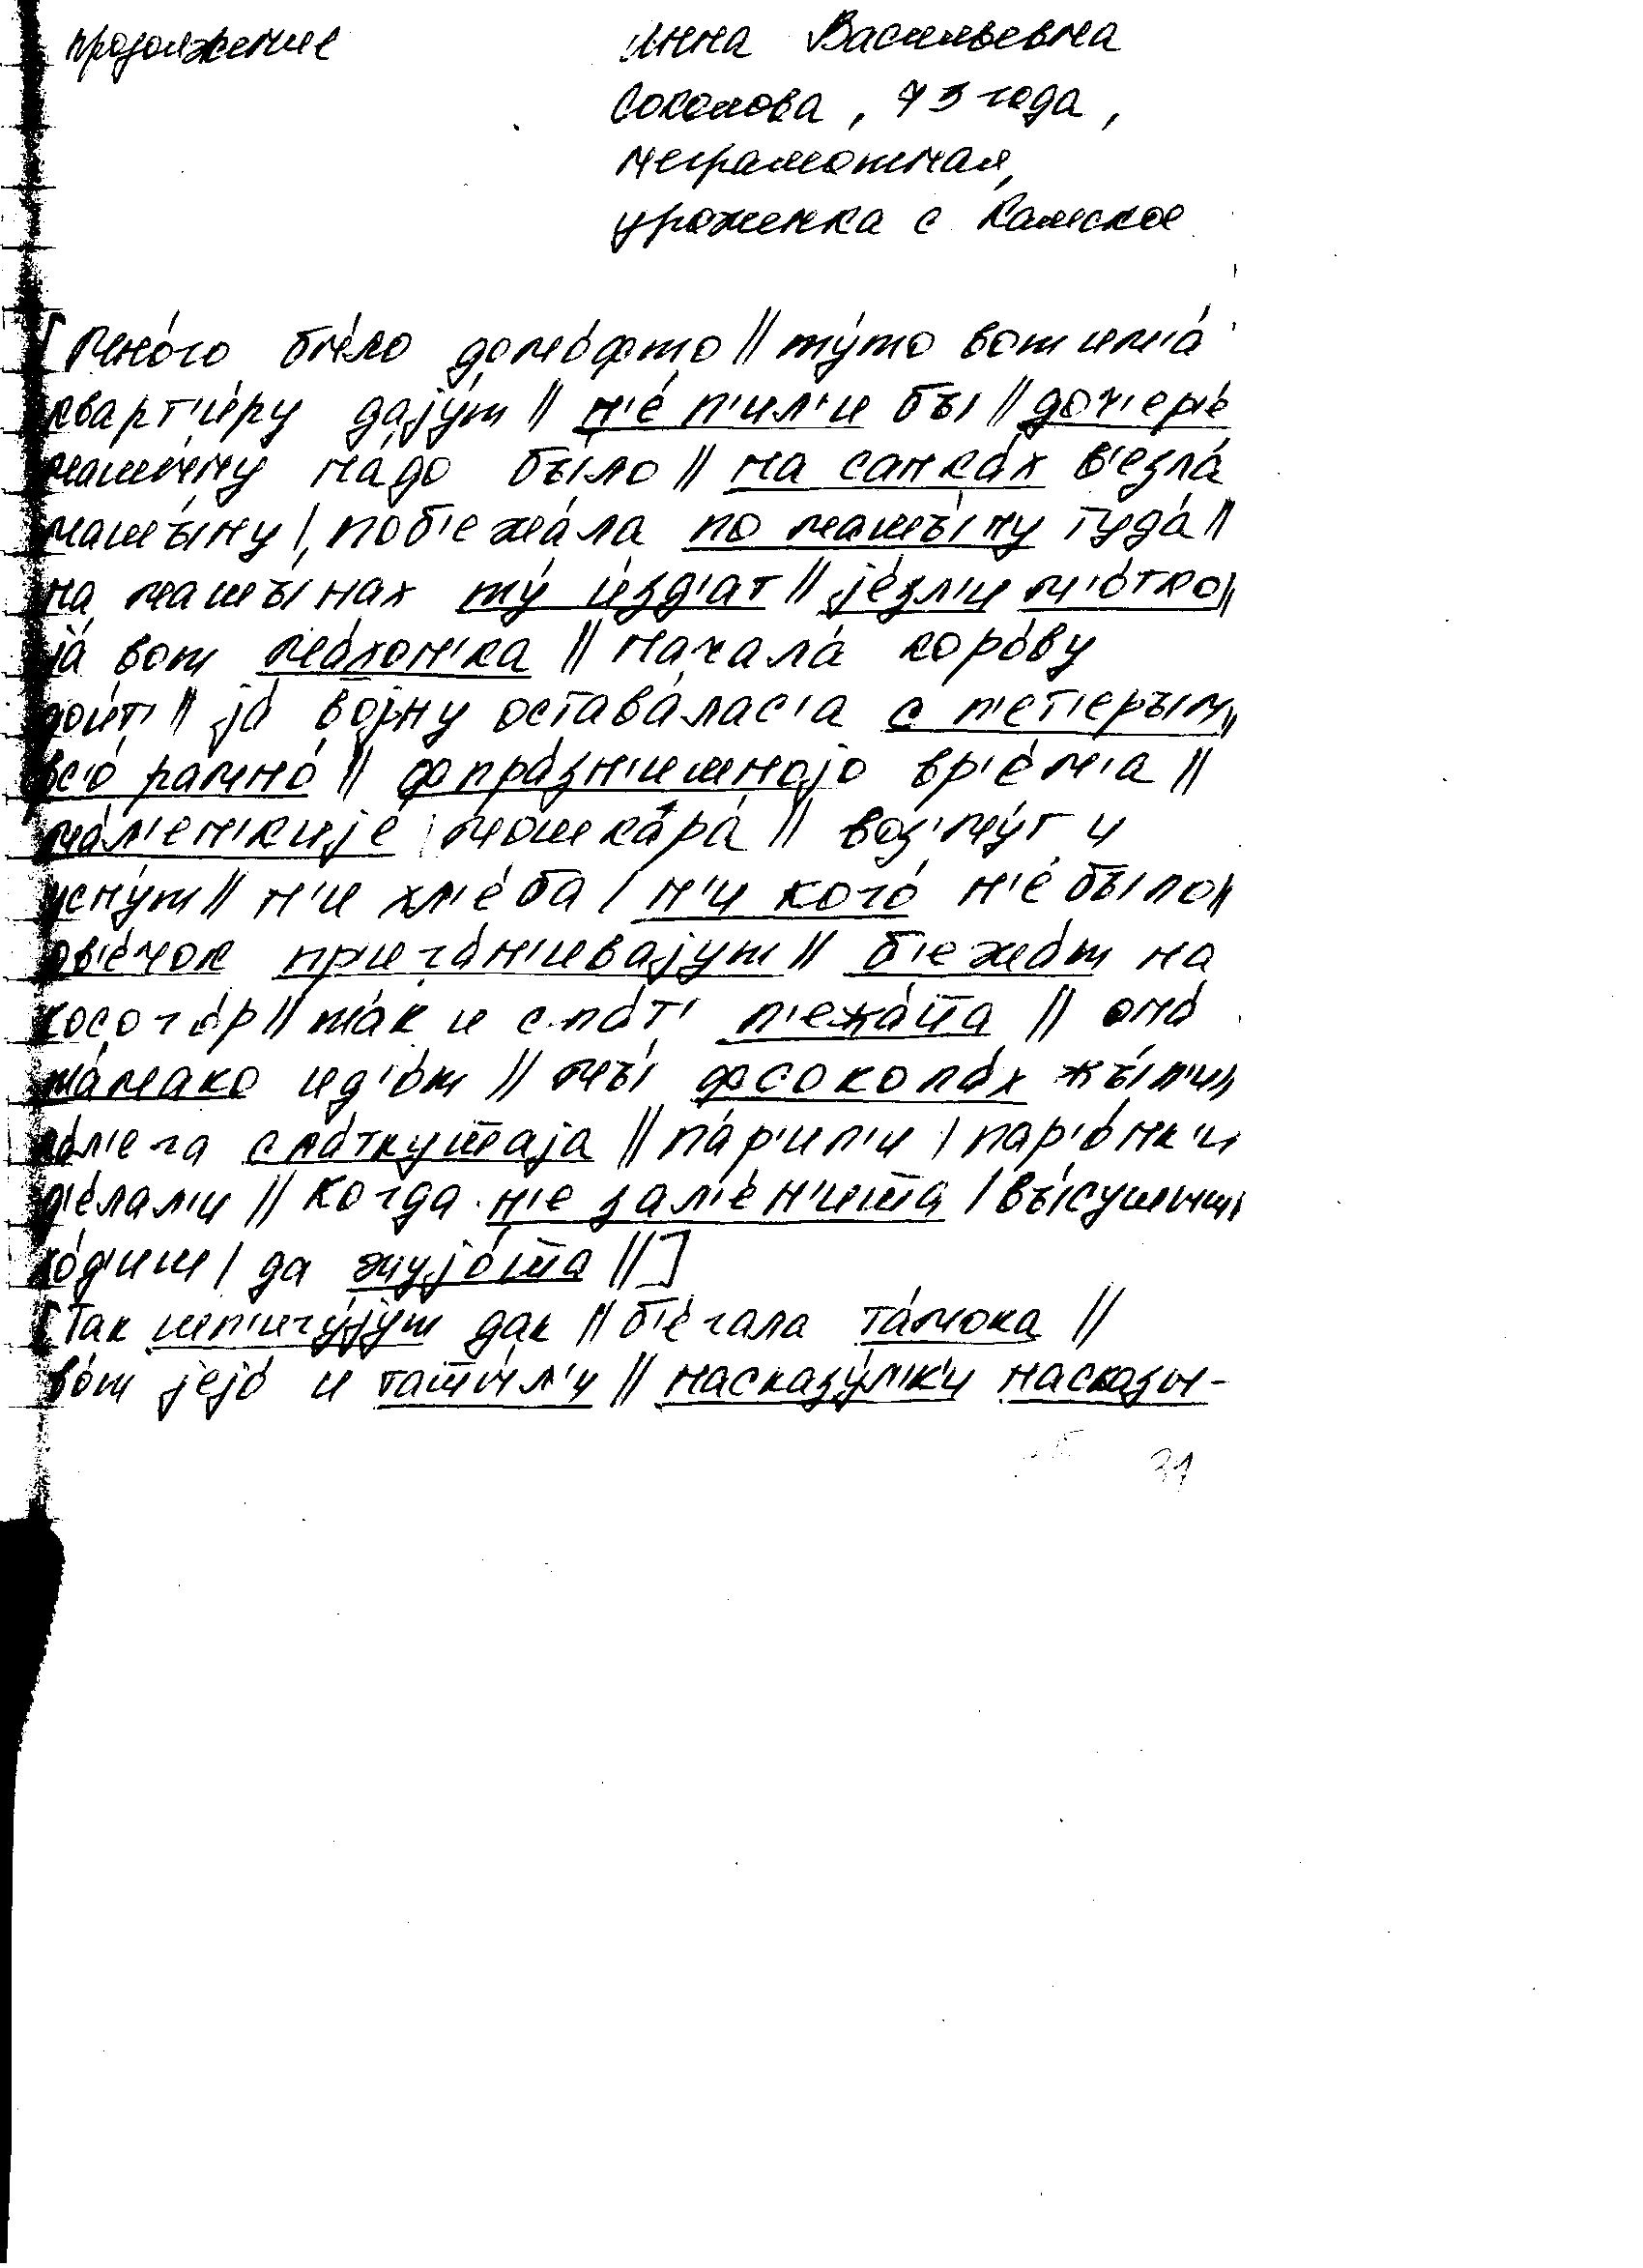 продолжение
Анна Васильевна
Соколова, 73 года,
неграмотная,
уроженка с Камское
[мно́го бы́ло домо́фто || ту́то вот им'а́
кварт'и́ру дају́т || н'е́ п'ил'и бы || доч'ер'е́
машы́ну на́до бы́ло || на санка́х в'езла́
машы́ну | поб'ежа́ла по машы́ну туда́ ||
на машы́нах ту́ и́зд'ат || је́зл'и м'о́тко ||
ја́ вот м'ахон'ка || начала́ коро́ву
дои́т' || ја́ војну́ остава́лас'а с п'ет'еры́м ||
вс'о́ рамно́ || фпра́зн'ишноjо вр'е́м'а ||
ма́л'ен'кије мошкара́ || воз'му́т и
усну́т || н'и хл'е́ба | н'и кого́ н'е́ было ||
ов'е́чок приѓан'ивајут || б'ежа́т на
косого́р || та́к и спа́т' л'ежа́т̅а || она́
та́мако ид'о́т || мы́ фсокола́х жы́л'и ||
кал'е́га сла́ткущ̅аја || па́р'ил'и | пар'о́нк'и
д'е́лал'и || когда н'е зал'е́н'ит̅а | вы́сушыш |
хо́д'иш | да жују́от̅а ||]
[Так шп'игу́јут дак || б'е́гала та́мока ||
во́т јејо́ и тат̅ы́л'и || насказу́л'к'и насказы-
31